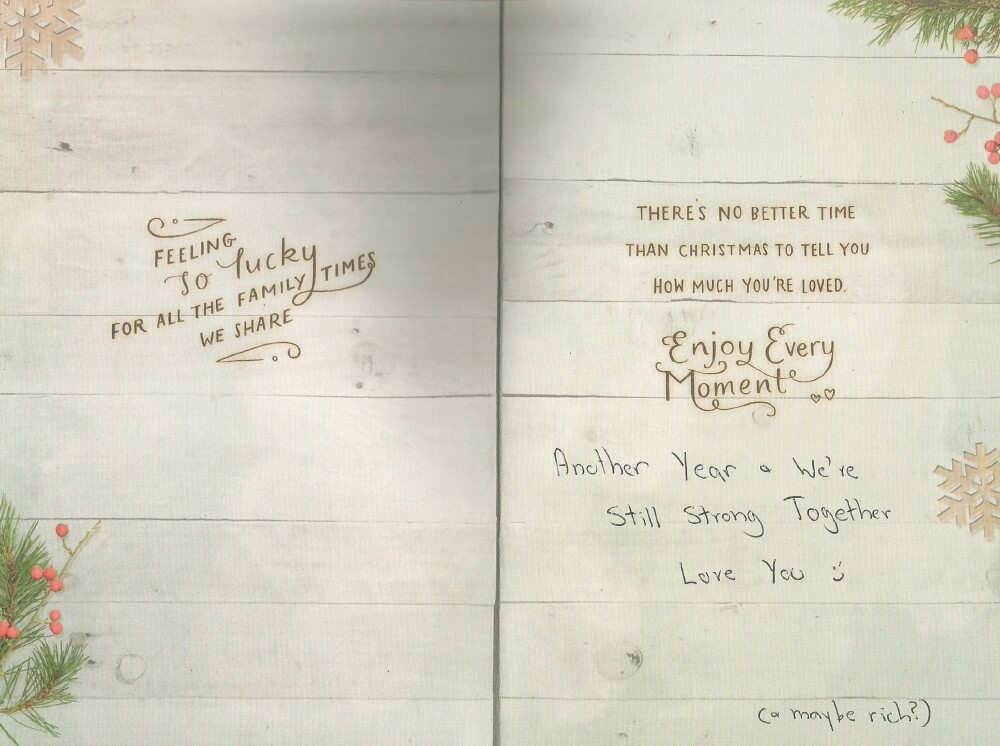 FEELING
So lucky
FOR ALL THE FAMILY TIMES
WE SHARE
THERE'S NO BETTER TIME
THAN CHRISTMAS TO TELL YOU
HOW MUCH YOU'RE LOVED.
Enjoy Every
Moment
Another Year & We're
Still Strong Together
Love You :)
(& maybe rich?)